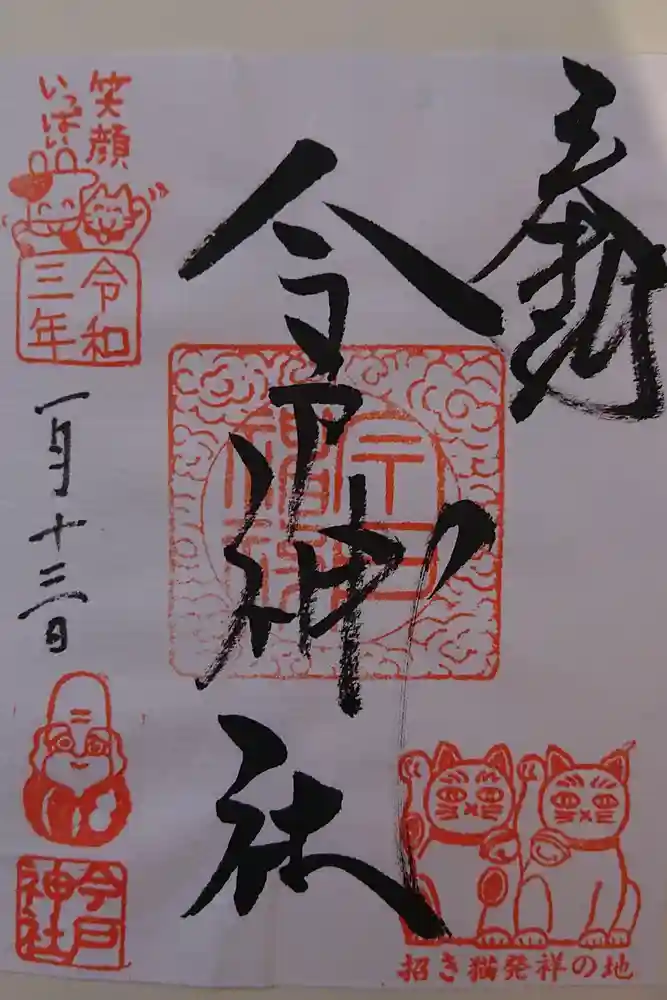 奉拝
今戸神社
笑顔
いっぱい
令和
三年
一月十三日
今戸
神社
招き猫発祥の地